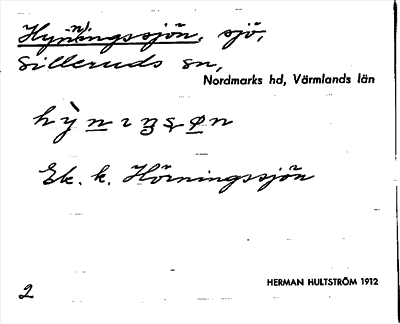 Hyn(n)ingssjön, sjö,
Silleruds sn,
Nordmarks hd, Värmlands län
Ek. k. Hörningssjön
HERMAN HULTSTRÖM 1912
2